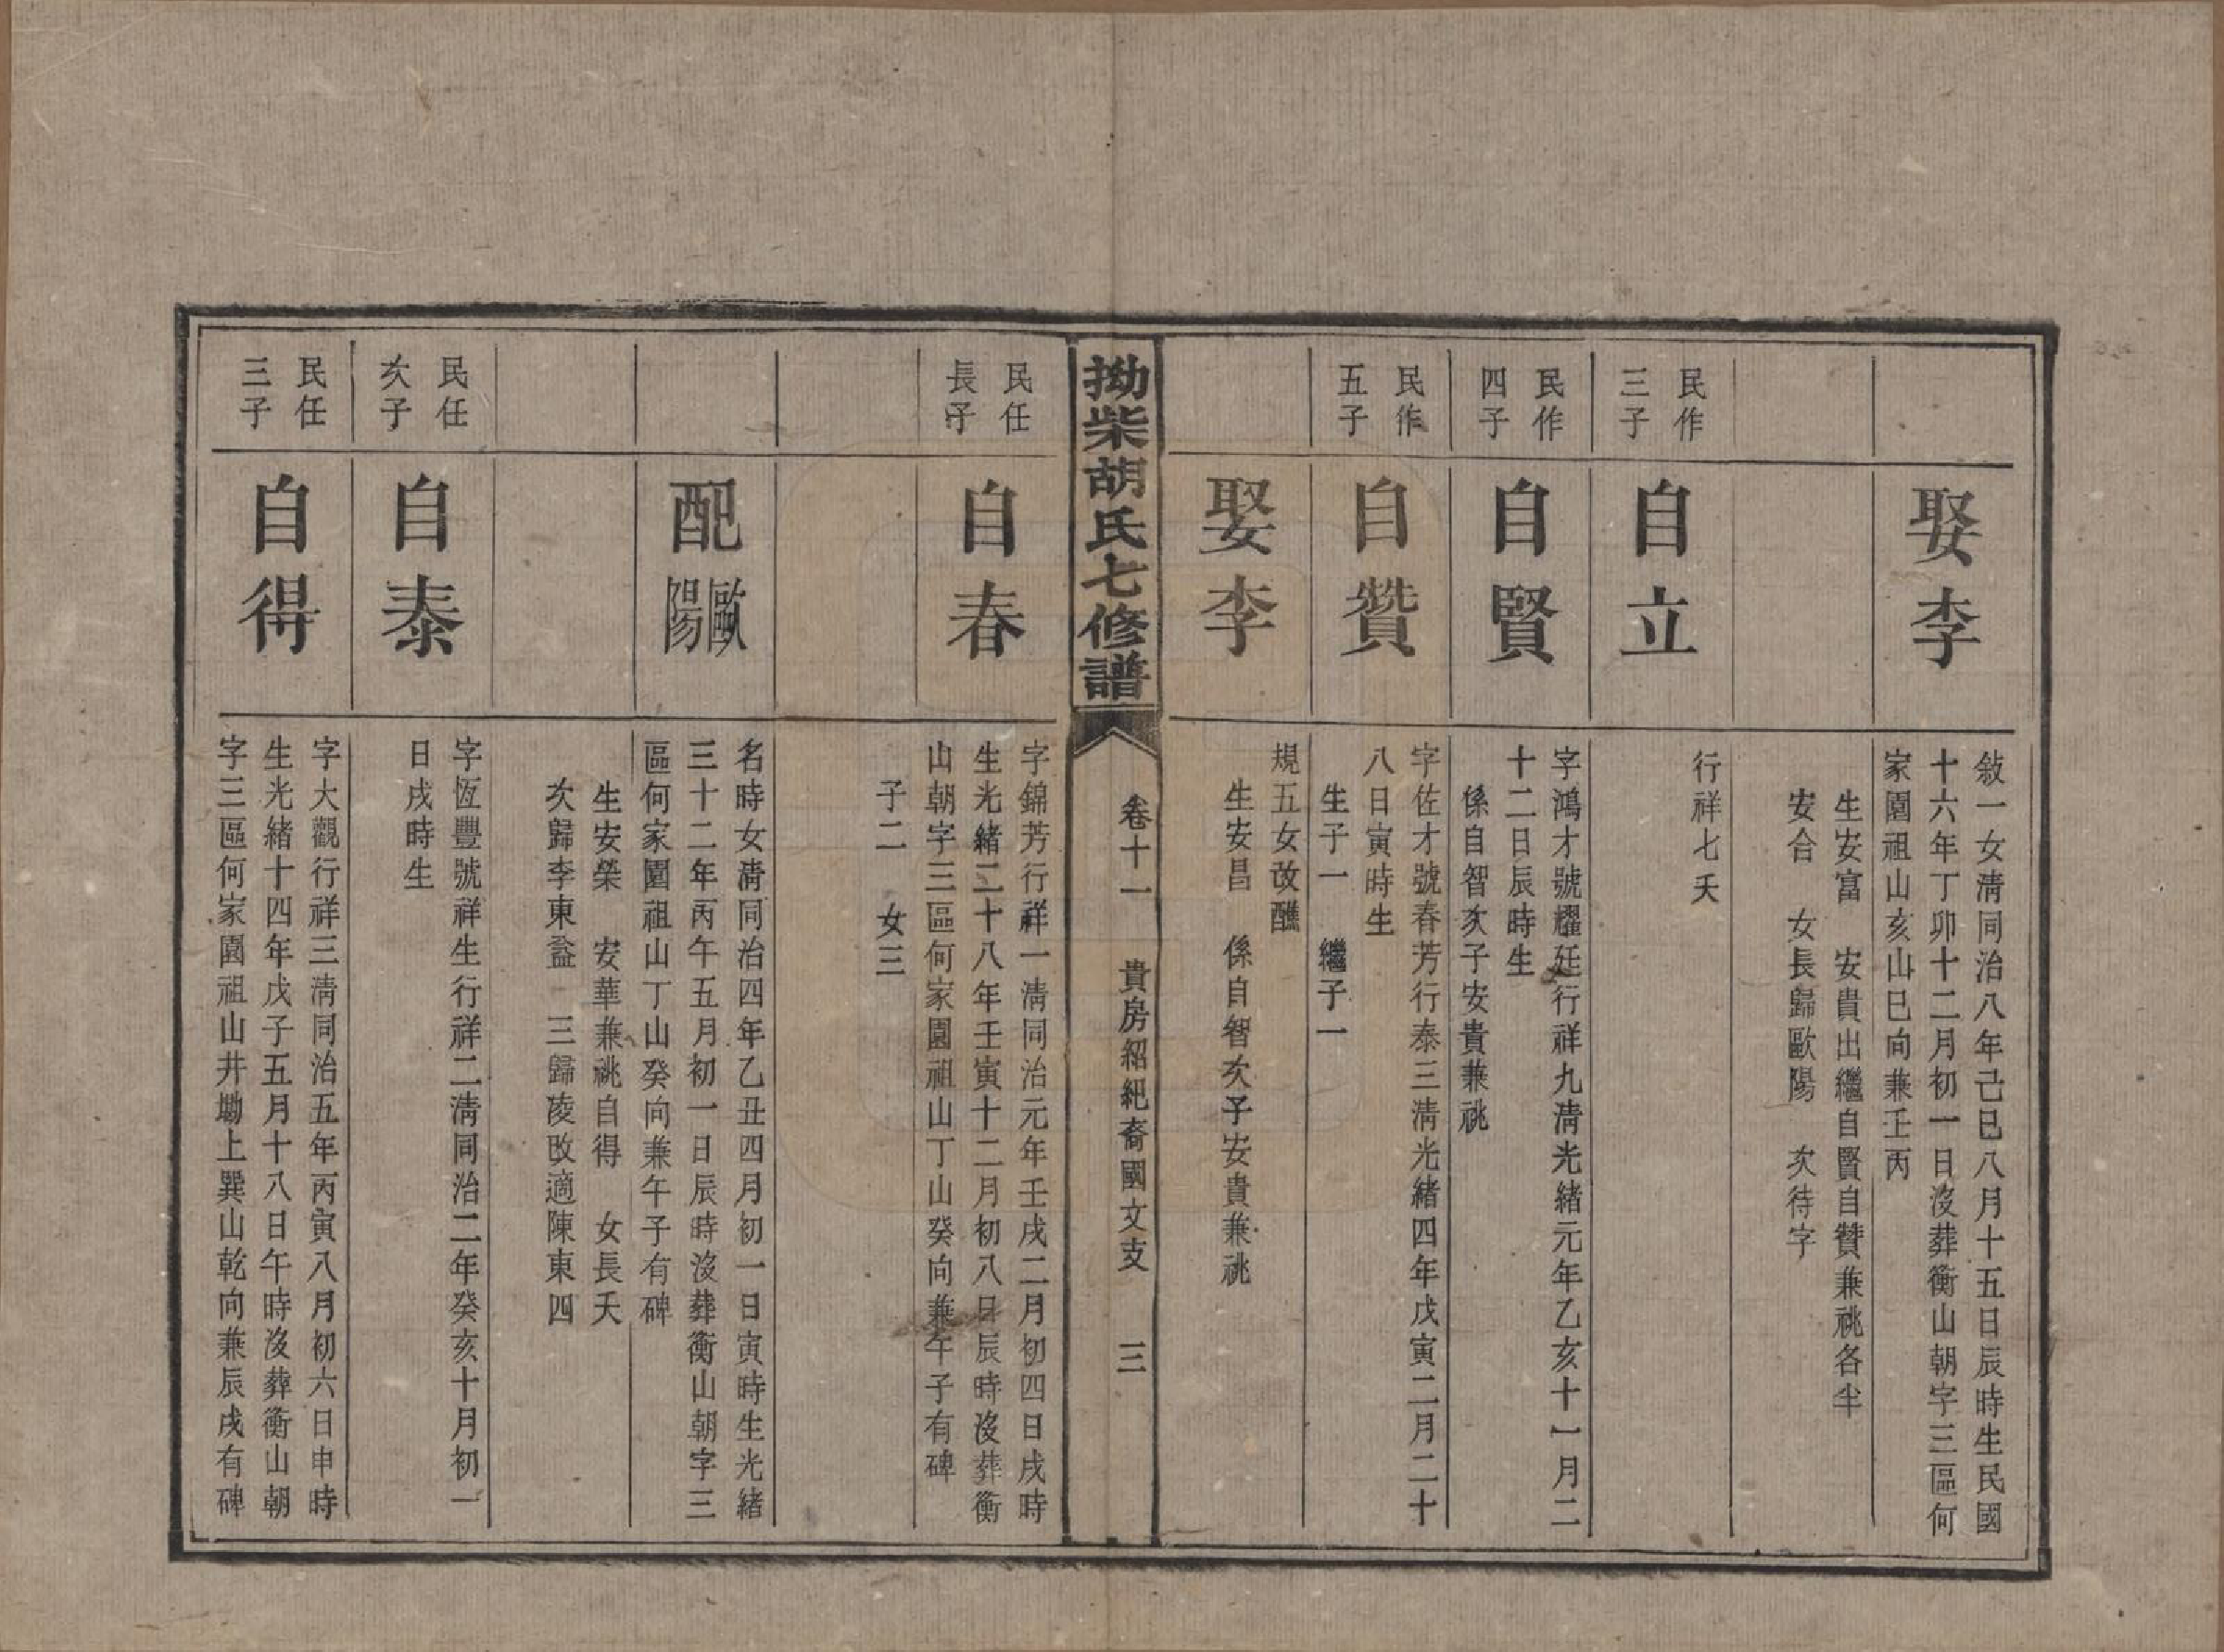 娶李
敍一女淸同治八年己巳八月十五日辰時生民國
十六年丁卯十二月初一日沒葬衡山朝字三區何
家園祖山亥山巳向兼壬丙
生安富　安貴出繼自賢自贊兼祧各半
安合　女長歸歐陽　次待字
民作
三子
自立
行祥七夭
民作
四子
自賢
字鴻才號耀廷行祥九淸光緒元年乙亥十一月二
十二日辰時生
係自智次子安貴兼祧
民作
五子
自贊
字佐才號春芳行泰三淸光緒四年戊寅二月二十
八日寅時生
生子一　繼子一
娶李
規五女改醮
生安昌　係自智次子安貴兼祧
拗柴胡氏七修譜
卷十一　貴房紹紀裔國文支　三
民任
長子
自春
字錦芳行祥一淸同治元年壬戌二月初四日戌時
生光緒二十八年壬寅十二月初八日辰時沒葬衡
山朝字三區何家園祖山丁山癸向兼午子有碑
子二　女三
配歐陽
名時女淸同治四年乙丑四月初一日寅時生光緒
三十二年丙午五月初一日辰時沒葬衡山朝字三
區何家園祖山丁山癸向兼午子有碑
生安榮　安華兼祧自得　女長夭
次歸李東益　三歸陵改適陳東四
民任
次子
自泰
字恆豐號祥生行祥二淸同治二年癸亥十月初一
日戌時生
民任
三子
自得
字大觀行祥三淸同治五年丙寅八月初六日申時
生光緒十四年戊子五月十八日午時沒葬衡山朝
字三區何家園祖山井塘上巽山乾向兼辰戌有碑